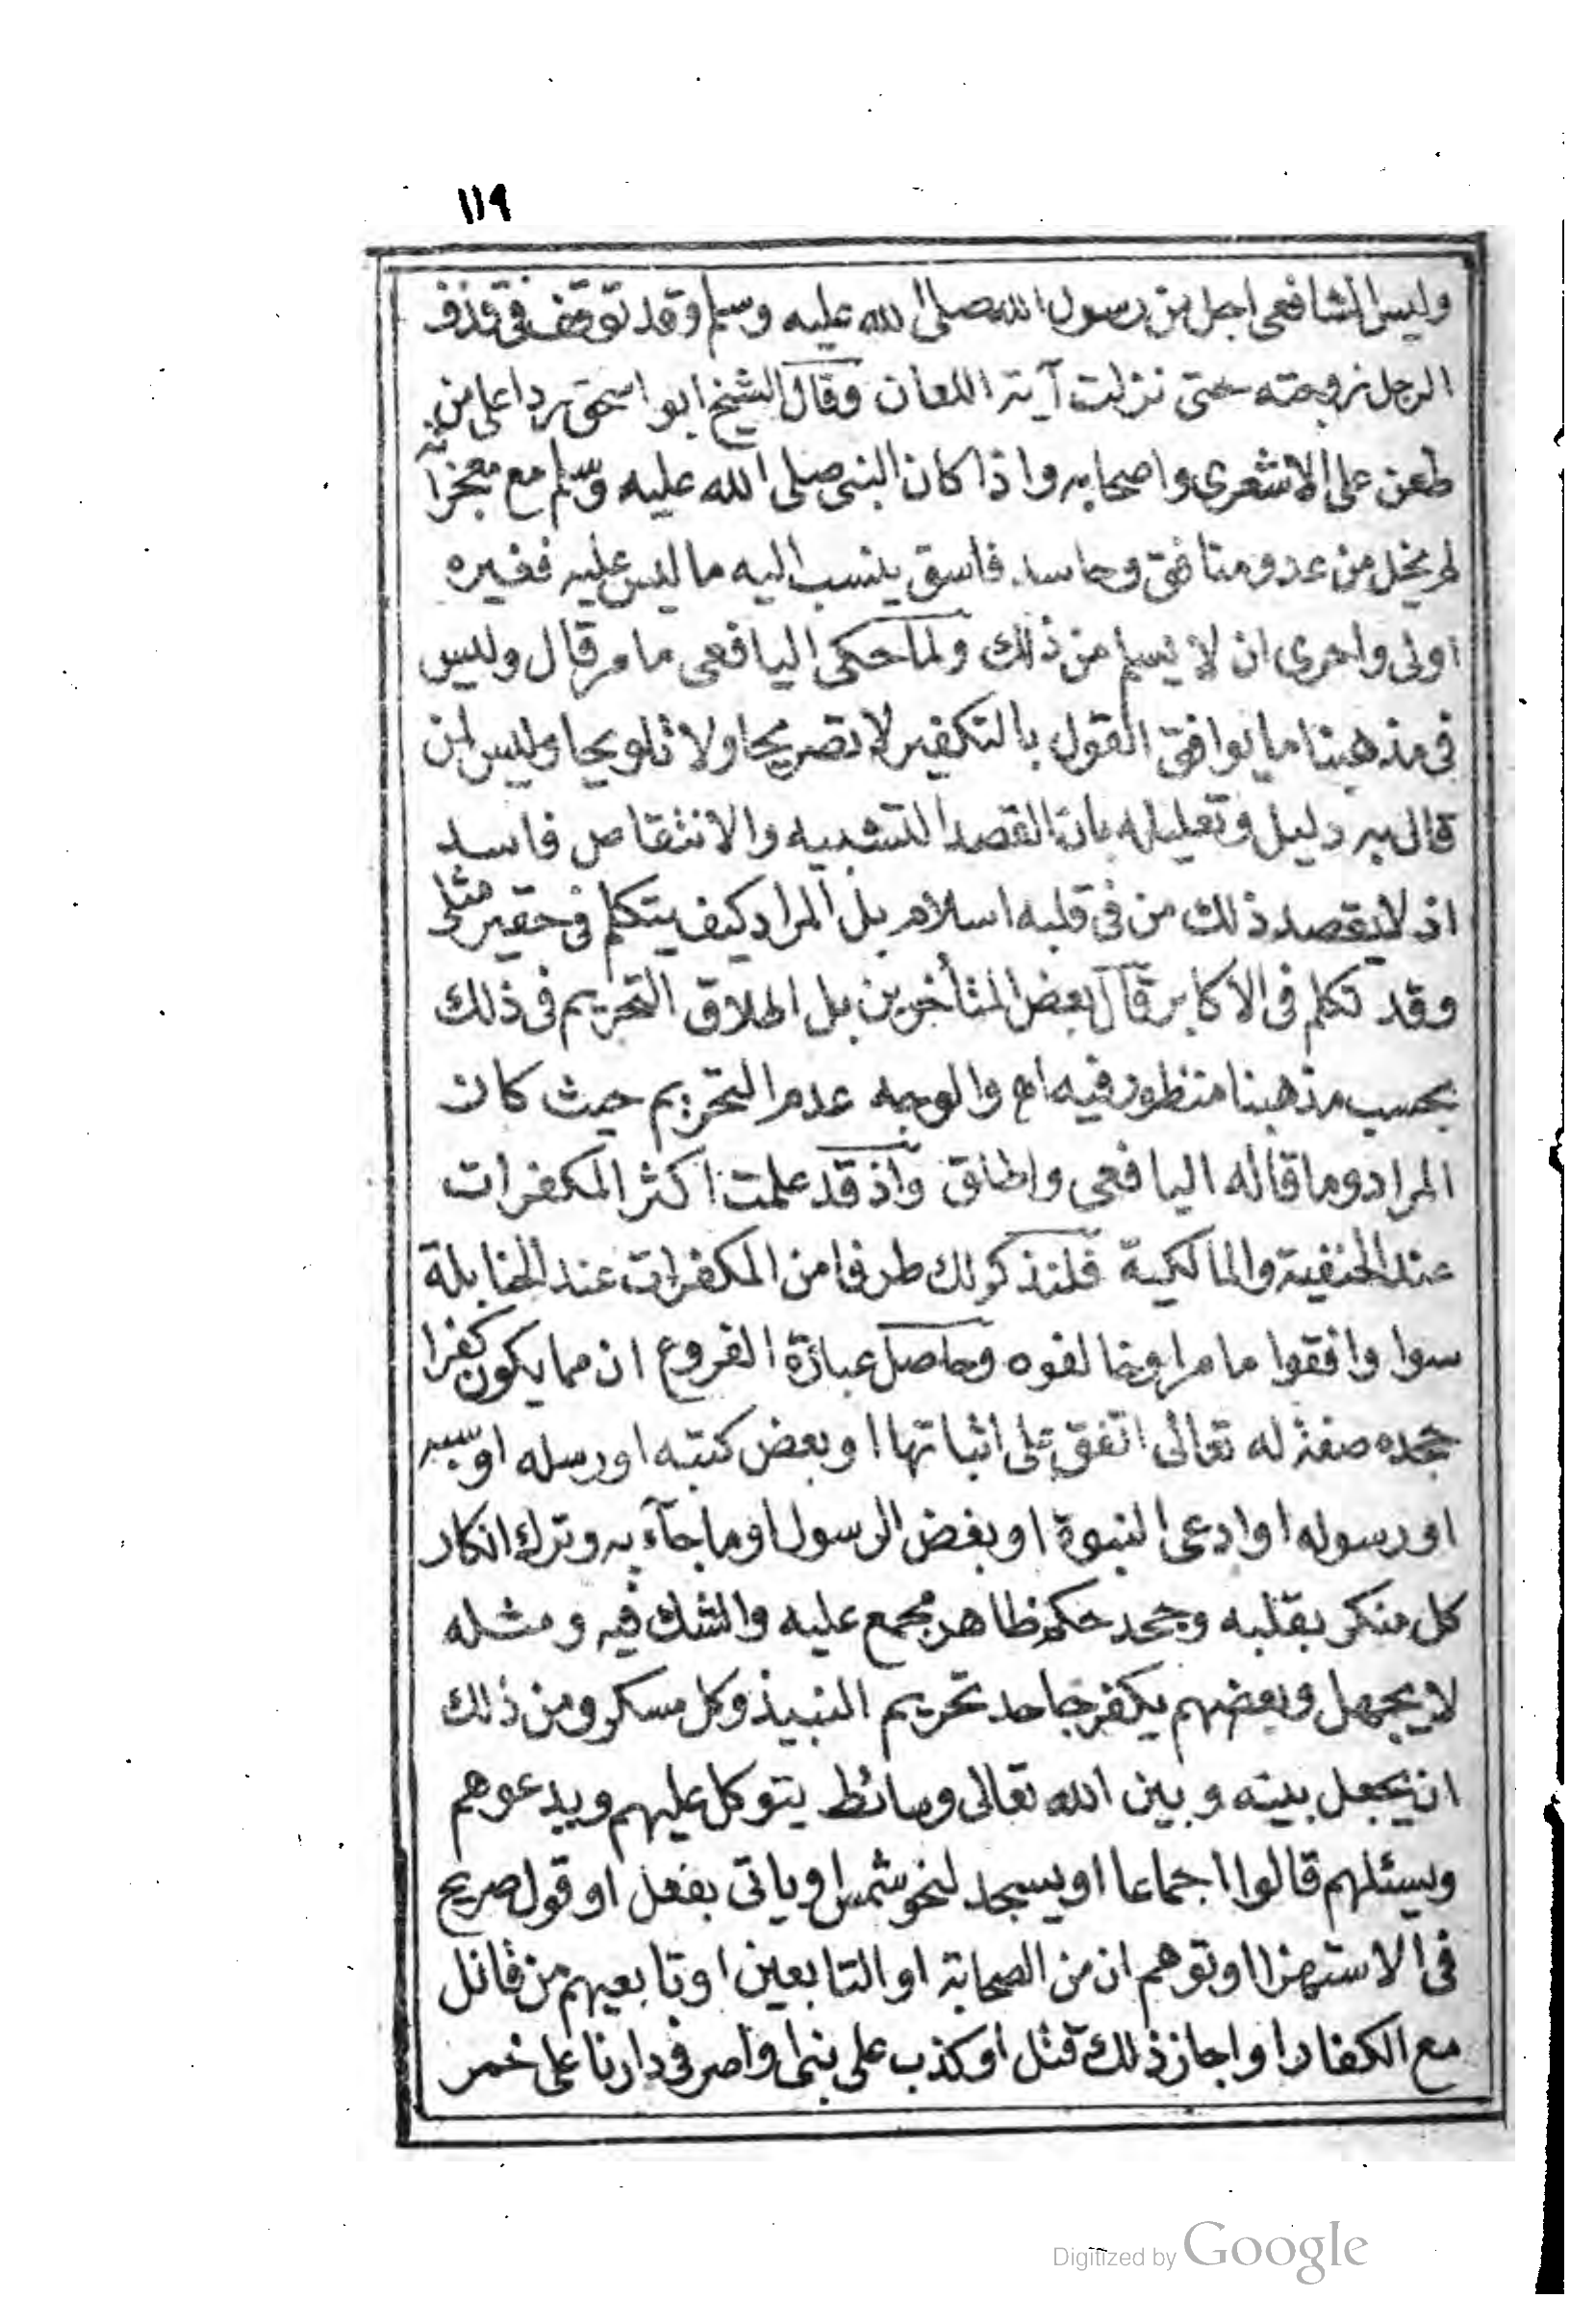 ١١٩
وليس الشافعى اجل من رسول الله صلى الله عليه وسلم وقد توقف فى قذف
الرجل زوجته حتى نزلت آية اللعان وقال الشيخ ابو اسحق رداعلى من
طعن على الاشعرى واصحابه واذا كان النبى صلى الله عليه وسلم مع معجزاته
لم يخل من عدو منافق وحاسد فاسق ينسب اليه ما ليس عليه فغيره
اولى واحرى ان لا يسلم من ذلك ولما حكى اليافعى ما مر قال وليس
فى مذهبنا ما يوافق القول بالتكفير لا تصريحا ولا تلويحا وليس لمن
قال به دليل وتعليله بان القصد التشبيه والانتقاص فاسد
اذ لا يقصد ذلك من فى قلبه اسلام بل المراد كيف يتكلم فى حقير مثلى
وقد تكلم فى الاكابر قال بعض المتأخرين بل اطلاق التحريم فى ذلك
بحسب مذهبنا منظور فيه اه والوجه عدم التحريم حيث كان
المراد وما قاله اليافعى واطلق واذ قد علمت اكثر المكفرات
عند الحنفية والمالكية فلنذكر لك طرفا من المكفرات عند الحنابلة
سوا وافقوا ما مر او خالفوه وحاصل عبارة الفروع ان مما يكون كفرا
جحده صفة له تعالى اتفق على اثباتها او بعض كتبه او رسله او سبه
او رسوله او ادعى النبوة او بغض الرسول او ما جآء به وترك انكار
كل منكر بقلبه وجحد حكم ظاهر مجمع عليه والشك فيه ومثله
لا يجهل وبعضهم يكفر جاحد تحريم النبيذ وكل مسكر ومن ذلك
ان يجعل بينه وبين الله تعالى وسائط يتوكل عليهم ويدعوهم
ويسئلهم قالوا اجماعا او يسجد لنحو شمس او ياتى بفعل او قول صريح
فى الاستهزا او توهم ان من الصحابة او التابعين او تابعيهم من قاتل
مع الكفار او اجاز ذلك قتل او كذب على نبى او اصر فى دارنا على خمر
Digitized by Google